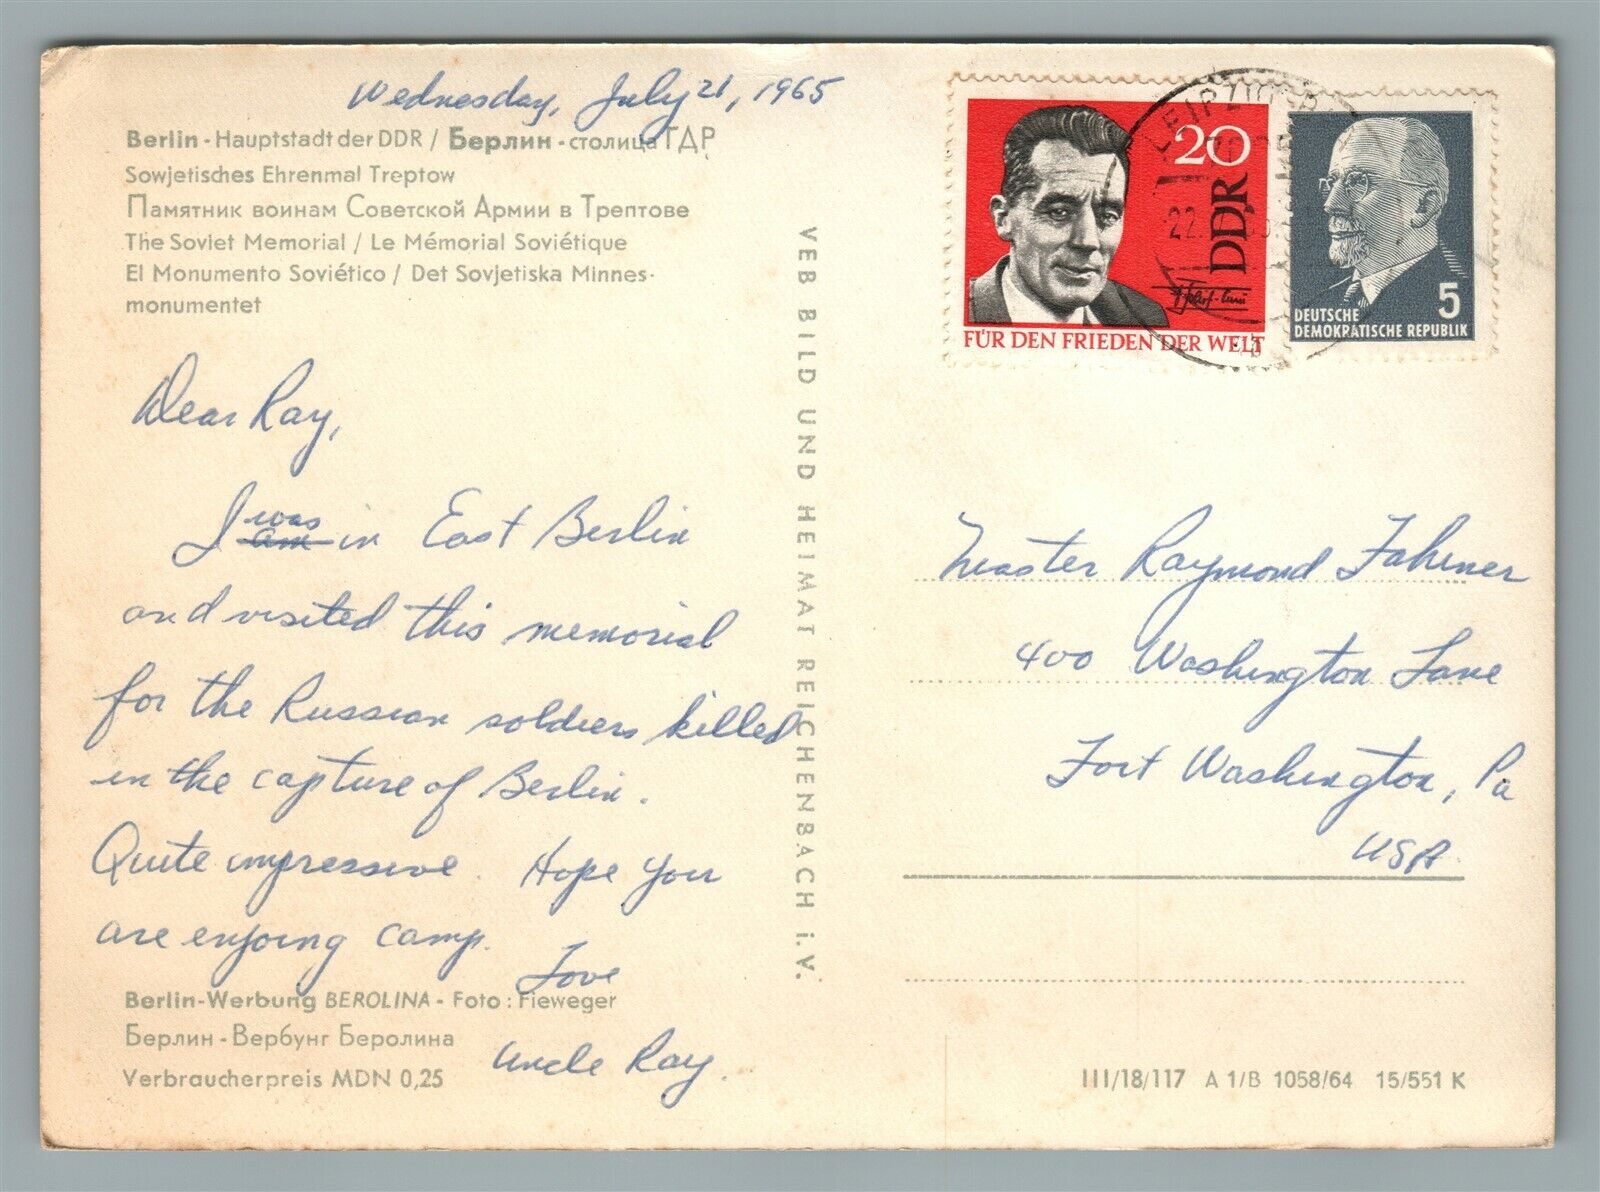 Wednesday, July 21, 1965
Berlin - Hauptstadt der DDR / Берлин - столица ГДР
Sowjetisches Ehrenmal Treptow
Памятник воинам Советской Армии в Трептове
The Soviet Memorial / Le Mémorial Soviétique
El Monumento Soviético / Det Sovjetiska Minnes-
monumentet
Dear Ray,
I was am in East Berlin
and visited this memorial
for the Russian soldiers killed
in the capture of Berlin.
Quite impressive. Hope you
are enjoing camp.
Love
Uncle Ray.
Berlin-Werbung BEROLINA - Foto: Fieweger
Берлин - Вербунг Беролина
Verbraucherpreis MDN 0,25
VEB BILD UND HEIMAT REICHENBACH i. V.
20
DDR
FÜR DEN FRIEDEN DER WELT
5
DEUTSCHE
DEMOKRATISCHE REPUBLIK
LEIPZIG
22.
Master Raymond Fahrner
400 Washington Lane
Fort Washington, Pa
USA.
III/18/117 A 1/B 1058/64 15/551 K